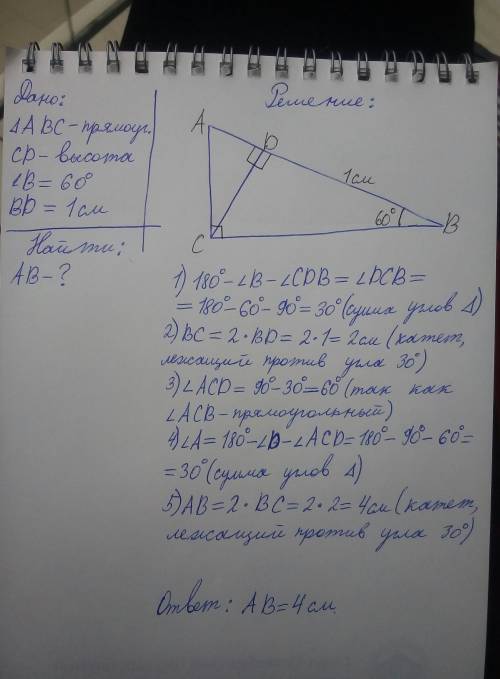 Дано:
ΔABC - прямоуг.
CD - высота
∠B = 60°
BD = 1 см
Найти:
AB - ?
Решение:
A
D
1 см
60°
B
C
1) 180° - ∠B - ∠CDB = ∠DCB =
= 180° - 60° - 90° = 30° (сумма углов Δ)
2) BC = 2 · BD = 2 · 1 = 2 см (катет,
лежащий против угла 30°)
3) ∠ACD = 90° - 30° = 60° (так как
∠ACB - прямоугольный)
4) ∠A = 180° - ∠D - ∠ACD = 180° - 90° - 60° =
= 30° (сумма углов Δ)
5) AB = 2 · BC = 2 · 2 = 4 см (катет,
лежащий против угла 30°)
Ответ: AB = 4 см.